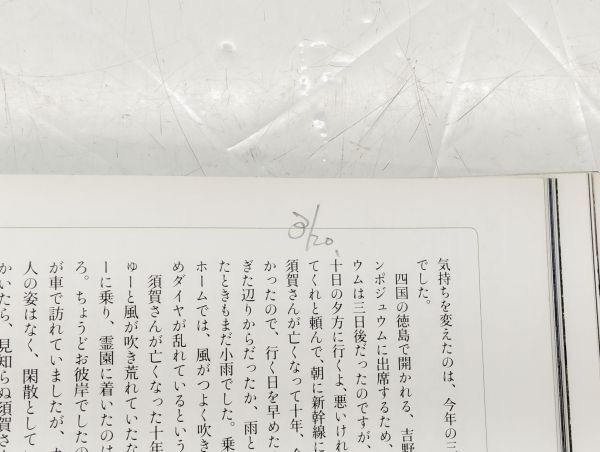 3/20
気持ちを変えたのは、今年の三
でした。
四国の徳島で開かれる、吉野
ンポジュウムに出席するため、
ウムは三日後だったのですが、
十日の夕方に行くよ、悪いけれ
てくれと頼んで、朝に新幹線に
須賀さんが亡くなって十年、
かったので、行く日を早めた
ぎた辺りからだったか、雨と
たときもまだ小雨でした。乗
ホームでは、風がつよく吹き
めダイヤが乱れているという
須賀さんが亡くなった十年
ゅーと風が吹き荒れていたな
ーに乗り、霊園に着いたのは
ろ。ちょうどお彼岸でしたの
が車で訪れていましたが、
人の姿はなく、閑散として
かいたら、見知らぬ須賀さ